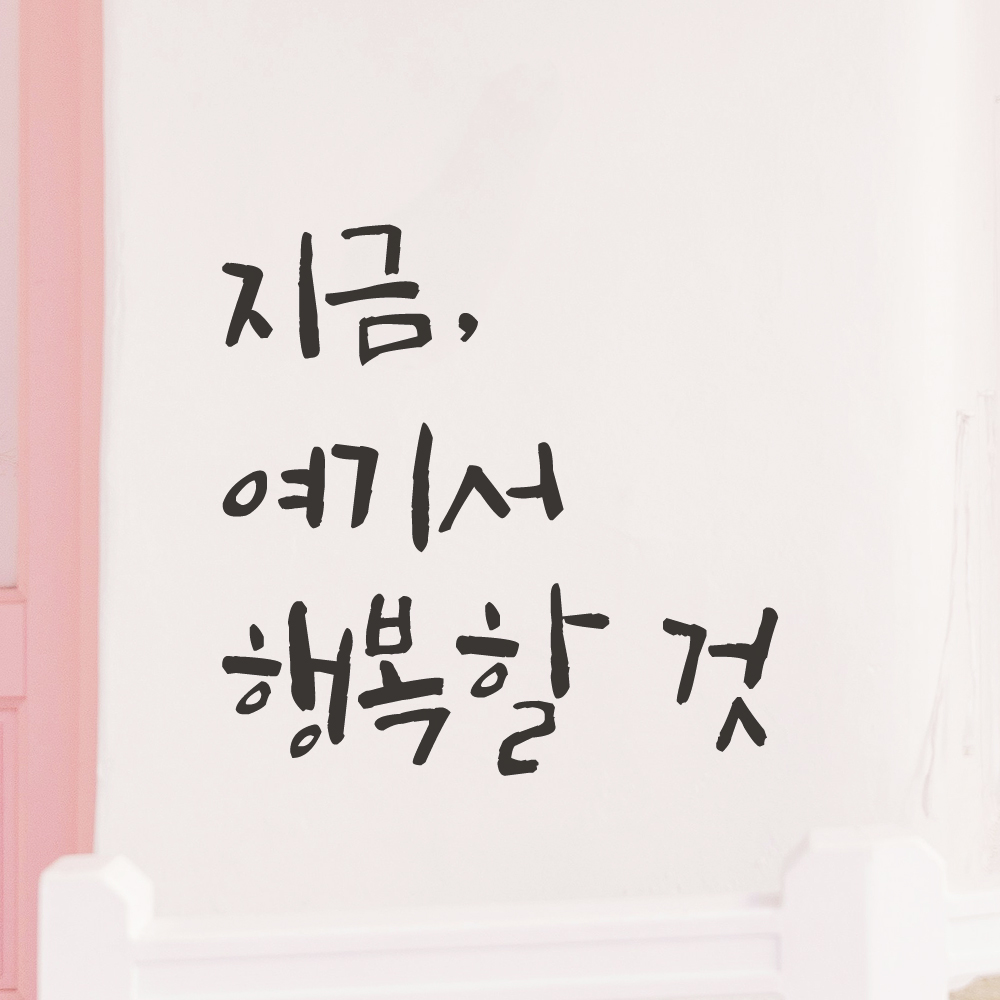 지금,
여기서
행복할 것